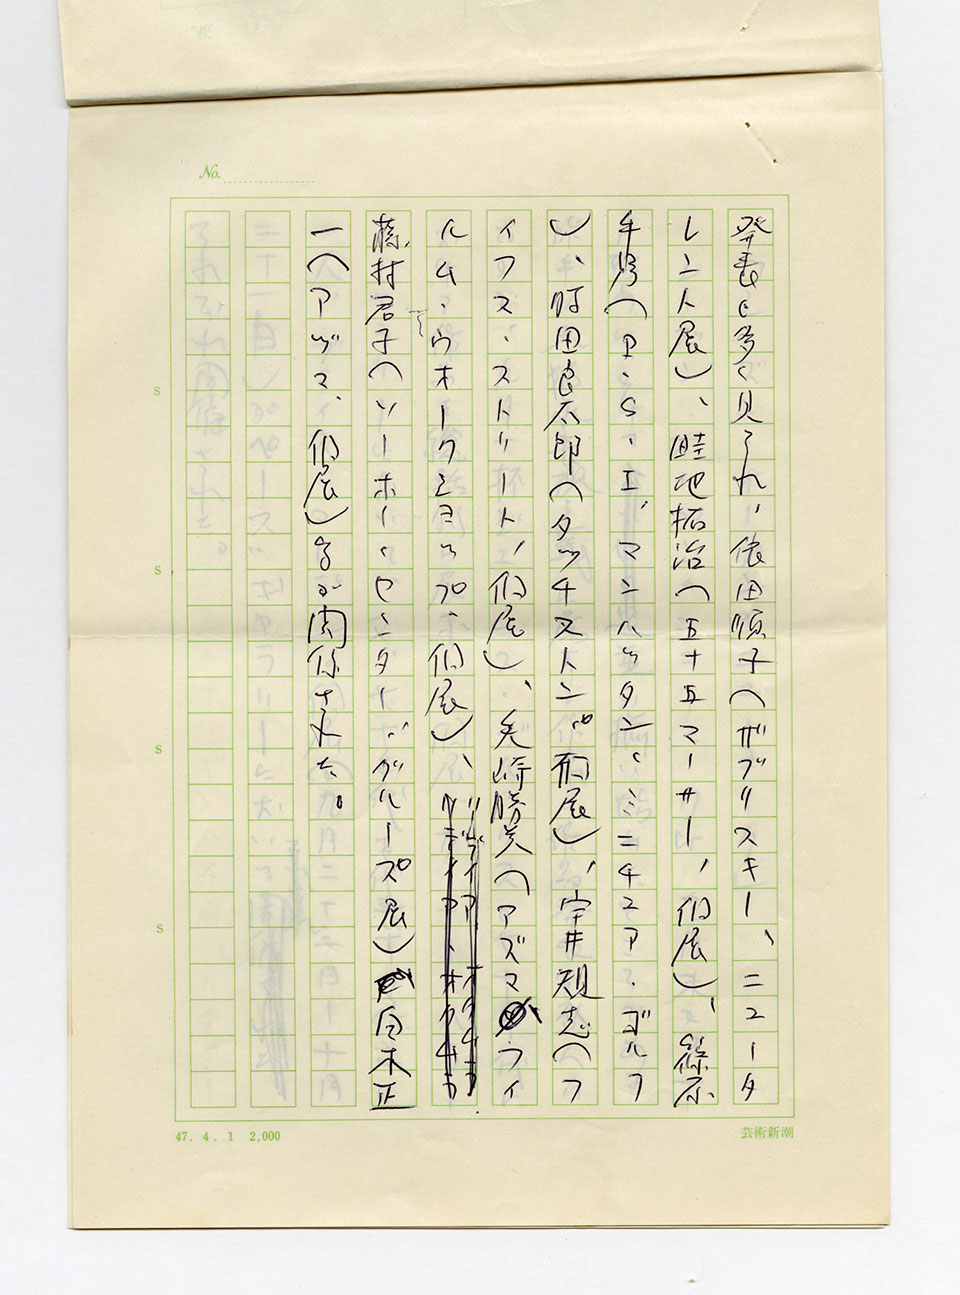 No.
発表も多く見られ、依田順子(ザブリスキー、ニュータ
レント展)、畦地拓治(五十五マーサー、個展)、篠原
有司男(P・S・1、マンハッタン・ミニチュア・ゴルフ
)、飯田良太郎(タッチストン、個展)、宇井規志(フ
イフス・ストリート、個展)、兎崎勝美(アズマ、ウィ
ルム・ウオークショップ、個展)、
藤村君子(ソーホー・センター、グループ展)白木正
一(アヅマ、個展)らが関係された。
S
S
S
S
47. 4. 1 2,000
芸術新潮